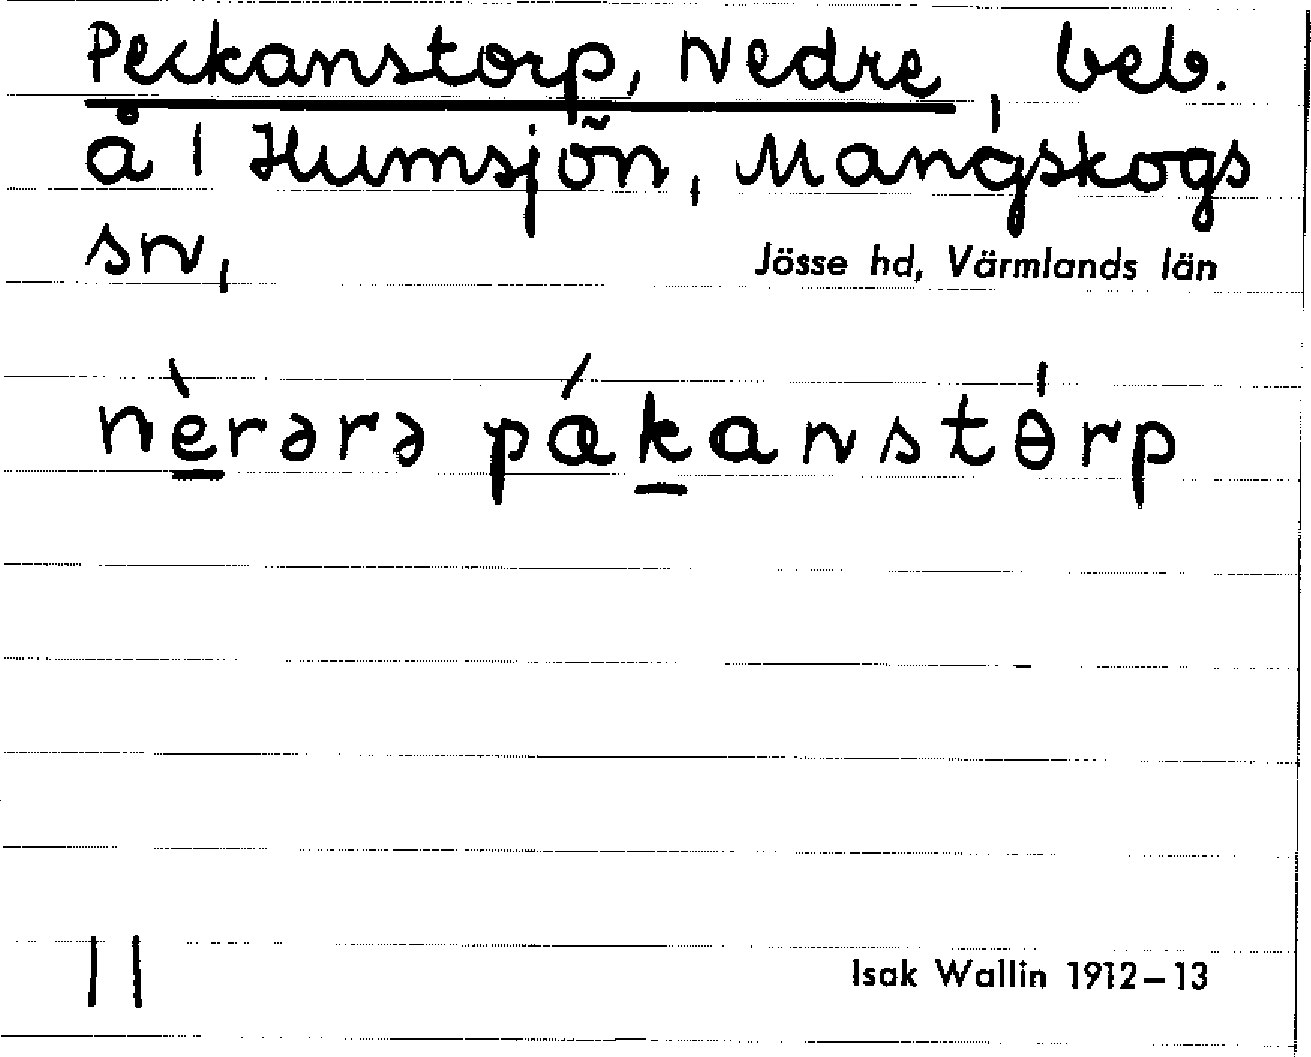 Peckanstorp, Nedre, beb.
å 1 Humsjön, Mangskogs
sn,
Jösse hd, Värmlands län
nèrərə pǽkanstɵ́rp
11
Isak Wallin 1912–13